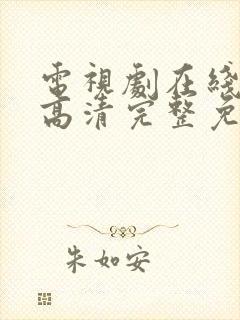 電視劇在綫
高清完整免
朱如安